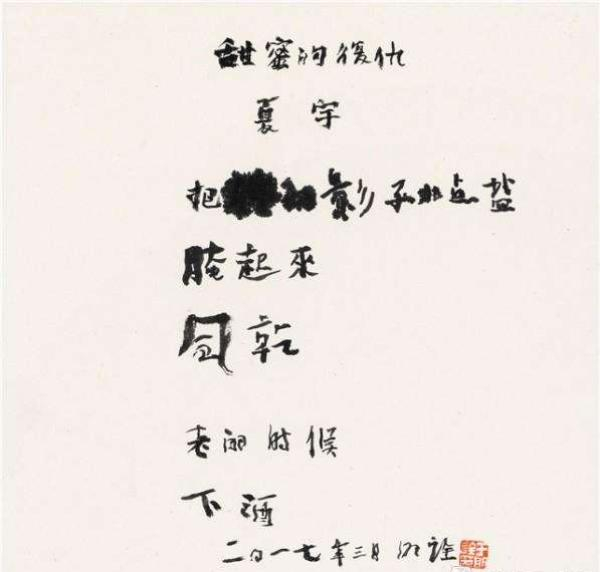 甜蜜的復仇
夏宇
把影子加点盐
腌起來
風乾
老的时候
下酒
二〇一七年三月明詮